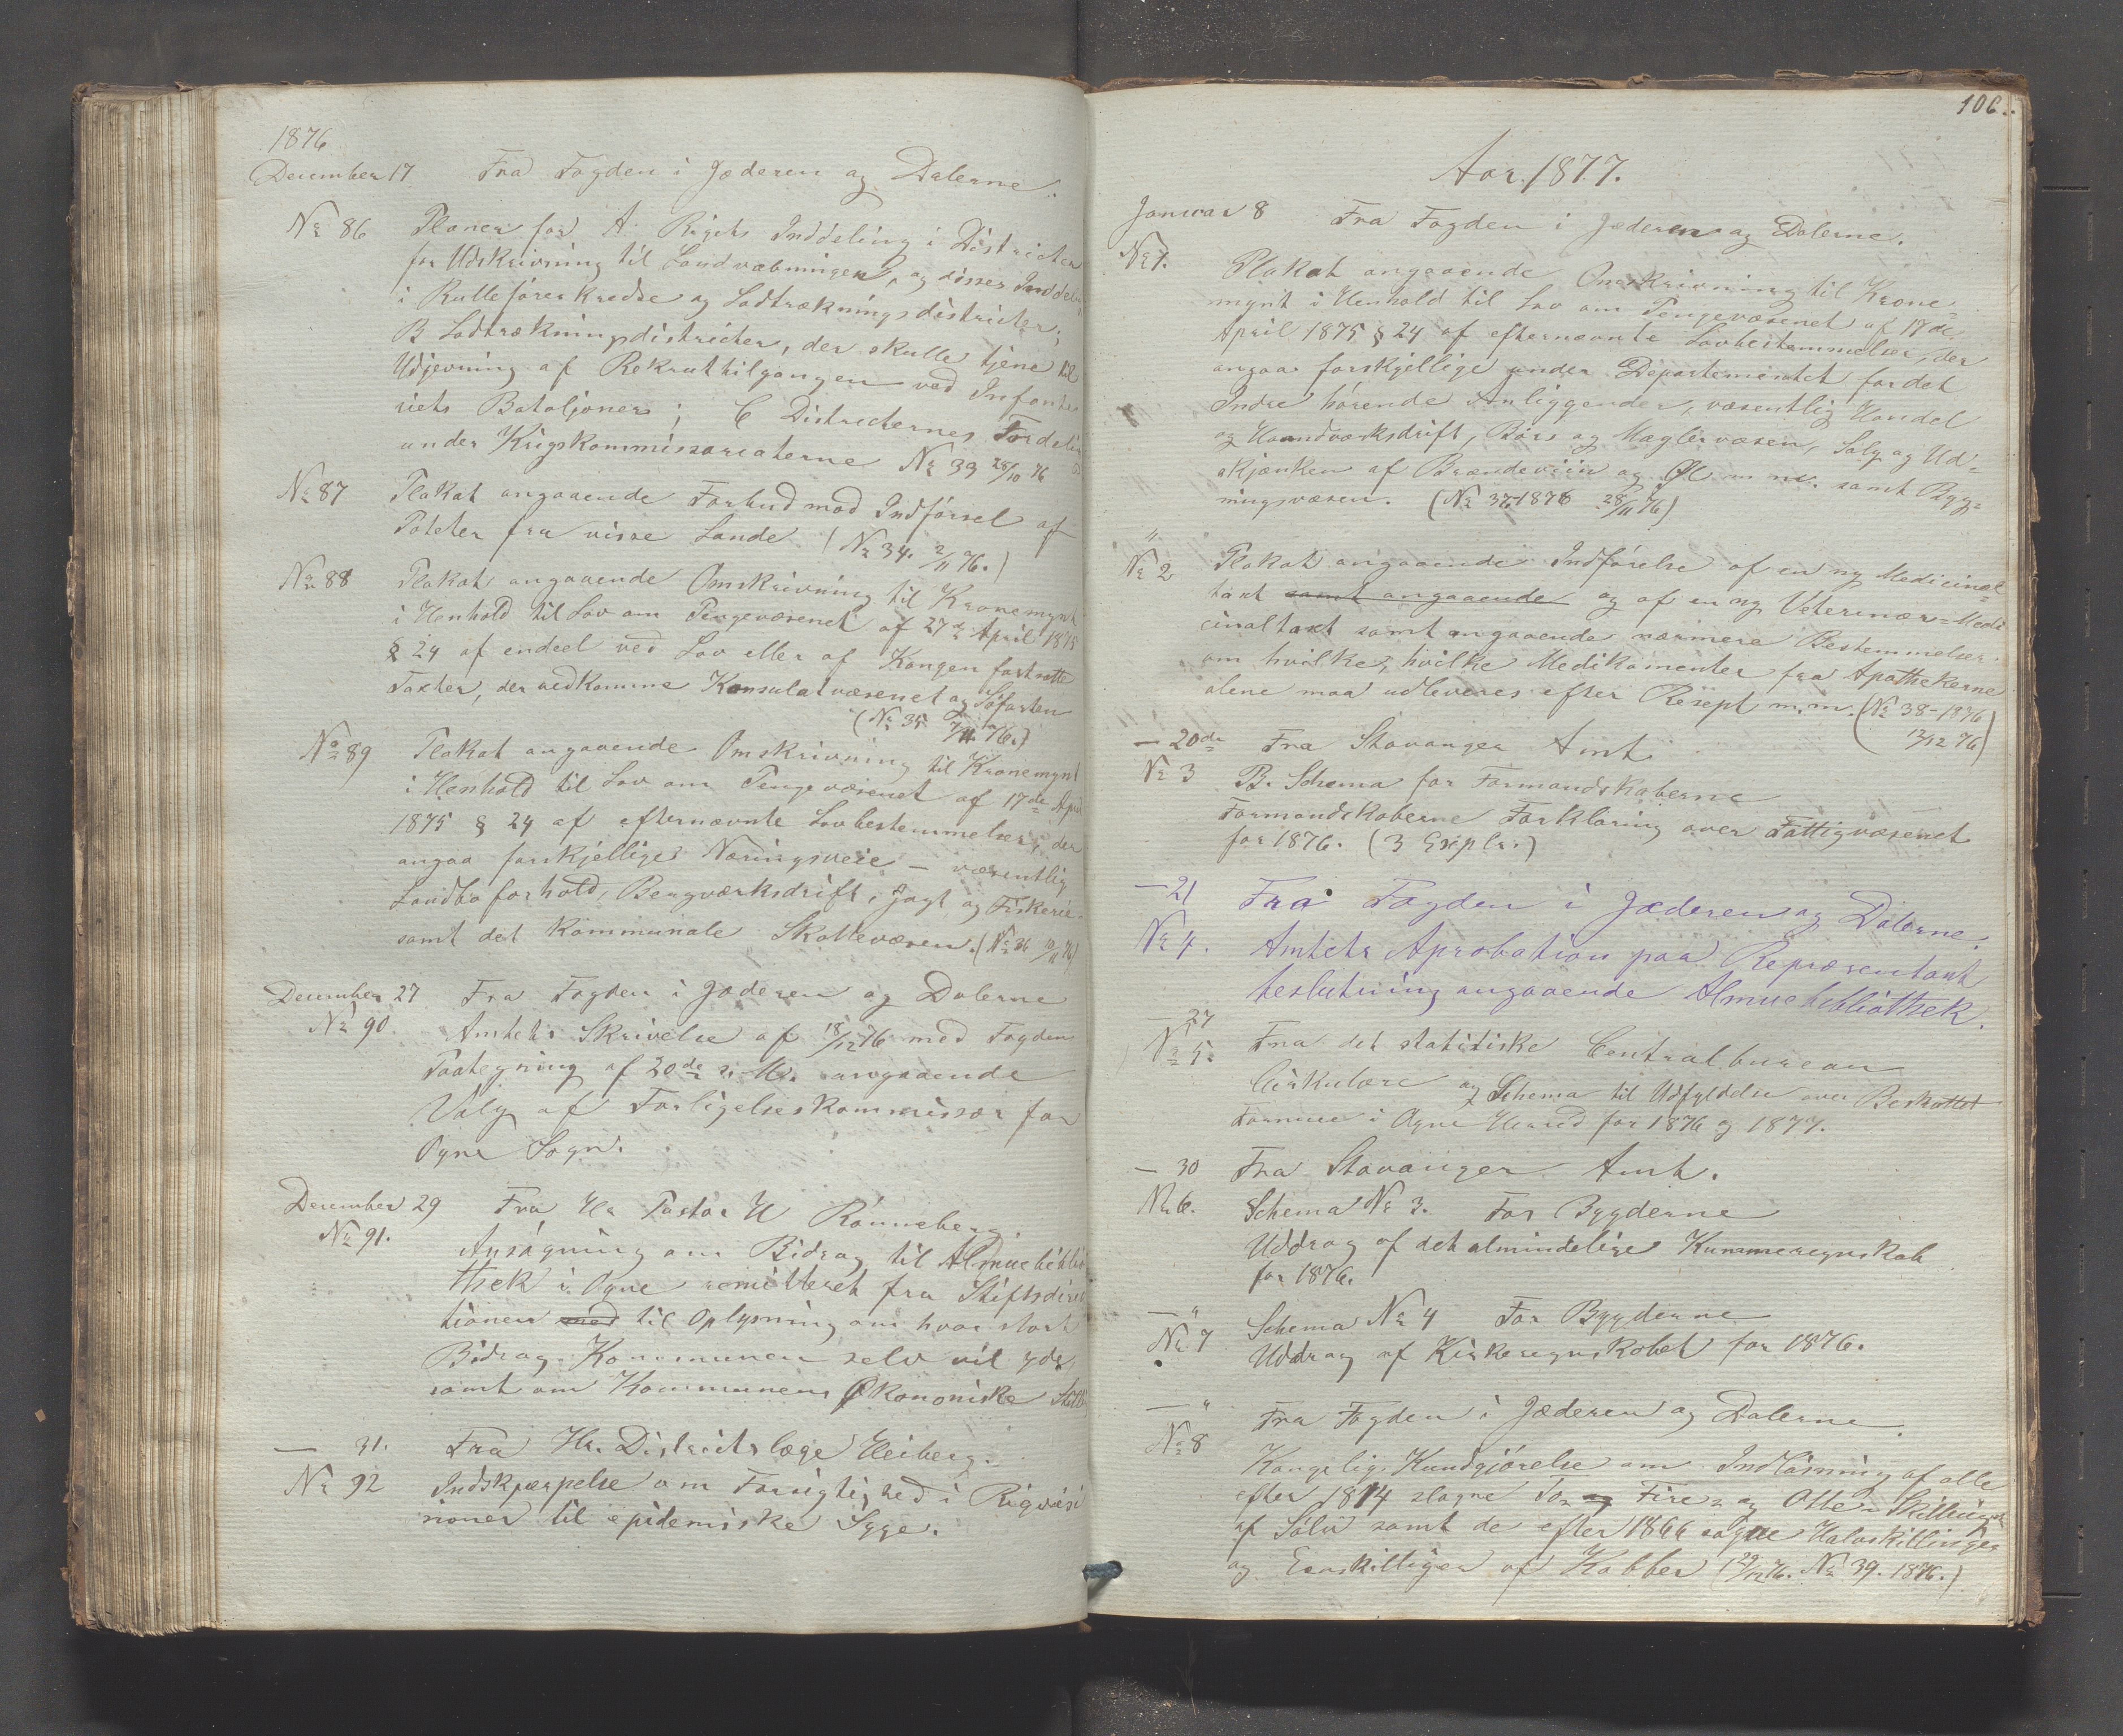 1876
December 17 Fra Fogden i Jæderen og Dalerne.
No 86 Planer for A. Rigets Inddeling i Districter
for Udskrivning til Landvæbningen, og disses Inddeli
i Rulleførerkredse og Lodtrækningsdistricter;
B Lodtrækningsdistricter, der skulle tjene til
Udjevning af Rekruttilgangen ved Infante
riets Bataljoner; C Districternes Fordeling
under Krigskommissariaterne No 33 28/10 76
No 87 Plakat angaaende Forbud mod Indførsel af
Poteter fra visse Lande (No 34. 2/11 76.)
No 88 Plakat angaaende Omskrivning til Kronemynt
i Henhold til Lov om Pengevæsenet af 27de April 1875
§ 24 af endeel ved Lov eller af Kongen fastsatte
Taxter, der vedkomme Konsulatvæsenet og Søfarten
(No 35 7/11 76.)
No 89 Plakat angaaende Omskrivning til Kronemynt
i Henhold til Lov om Pengevæsenet af 17de April
1875 § 24 af efternævnte Lovbestemmelser, der
angaa forskjellige Næringsveie – væsentlig
Landboforhold, Bergværksdrift, Jagt og Fiskerie
samt det kommunale Skattevæsen. (No 36 10/11 76)
December 27 Fra Fogden i Jæderen og Dalerne
No 90. Amtets Skrivelse af 18/12 76 med Fogdens
Paategning af 20de s. M. angaaende
Valg af Forligelseskommissær for
Ogne Sogn.
December 29 Fra Hr Pastor H Rønneberg
No 91. Ansøgning om Bidrag til Almuebiblio
thek i Ogne remitteret fra Stiftsdirek
tionen med til Oplysning om hvor stort
Bidrag Kommunen selv vil yde,
samt om Kommunens Økonomiske Still
— 31. Fra Hr. Districtslæge Heiberg.
No 92 Indskjærpelse om Forsigtighed i
til epidemiske Syge.
106.
Aar 1877.
Januar 8 Fra Fogden i Jæderen og Dalerne.
No 1. Plakat angaaende Omskrivning til Krone-
mynt i Henhold til Lov om Pengevæsenet af 17de
April 1875 § 24 af efternævnte Lovbestemmelser, der
angaa forskjellige under Departementet for det
Indre hørende Anliggender, væsentlig Handel
og Haandværksdrift, Børs og Mæglervæsen, Salg og Ud-
skjænken af Brændeviin og Øl m m. samt Byg-
ningsvæsen. (No 37 1876 28/11 76)
"
No 2 Plakat angaaende Indførelse af en ny Medicinal-
taxt samt angaaende og af en ny Veterinær-Medi
cinaltaxt samt angaaende nærmere Bestemmelser
om hvilke, hvilke Medikamenter fra Apothekerne
alene maa udleveres efter Resept m.m. (No 38-1876
12/12 76)
— 20de Fra Stavanger Amt
No 3 B. Schema for Formandskaberne
Formandskaberne Forklaring over Fattigvæsenet
for 1876. (3 Explr.)
— 21 Fra Fogden i Jæderen og Dalerne.
No 4. Amtets Aprobation paa Repræsentant
beslutning angaaende Almuebibliothek.
— 27
No 5. Fra det statistiske Centralbureau
Cirkulære og Schema til Udfyldelse over Beskattet
Formue i Ogne Herred for 1876 og 1877.
— 30 Fra Stavanger Amt.
No 6. Schema No 3. For Bygderne
Uddrag af det almindelige Kommuneregnskab
for 1876.
— " Schema No 4 For Bygderne
No 7 Uddrag af Kirkeregnskabet for 1876.
— " Fra Fogden i Jæderen og Dalerne.
No 8
Kongelig Kundgjørelse om Indløsning af alle
efter 1814 slagne To- og Fire- og Otte- Skillingst
af Sølv samt de efter 1866 sagne Halvskillinger
og Eenskilliger af Kobber (29/12 76. No 39. 1876.)